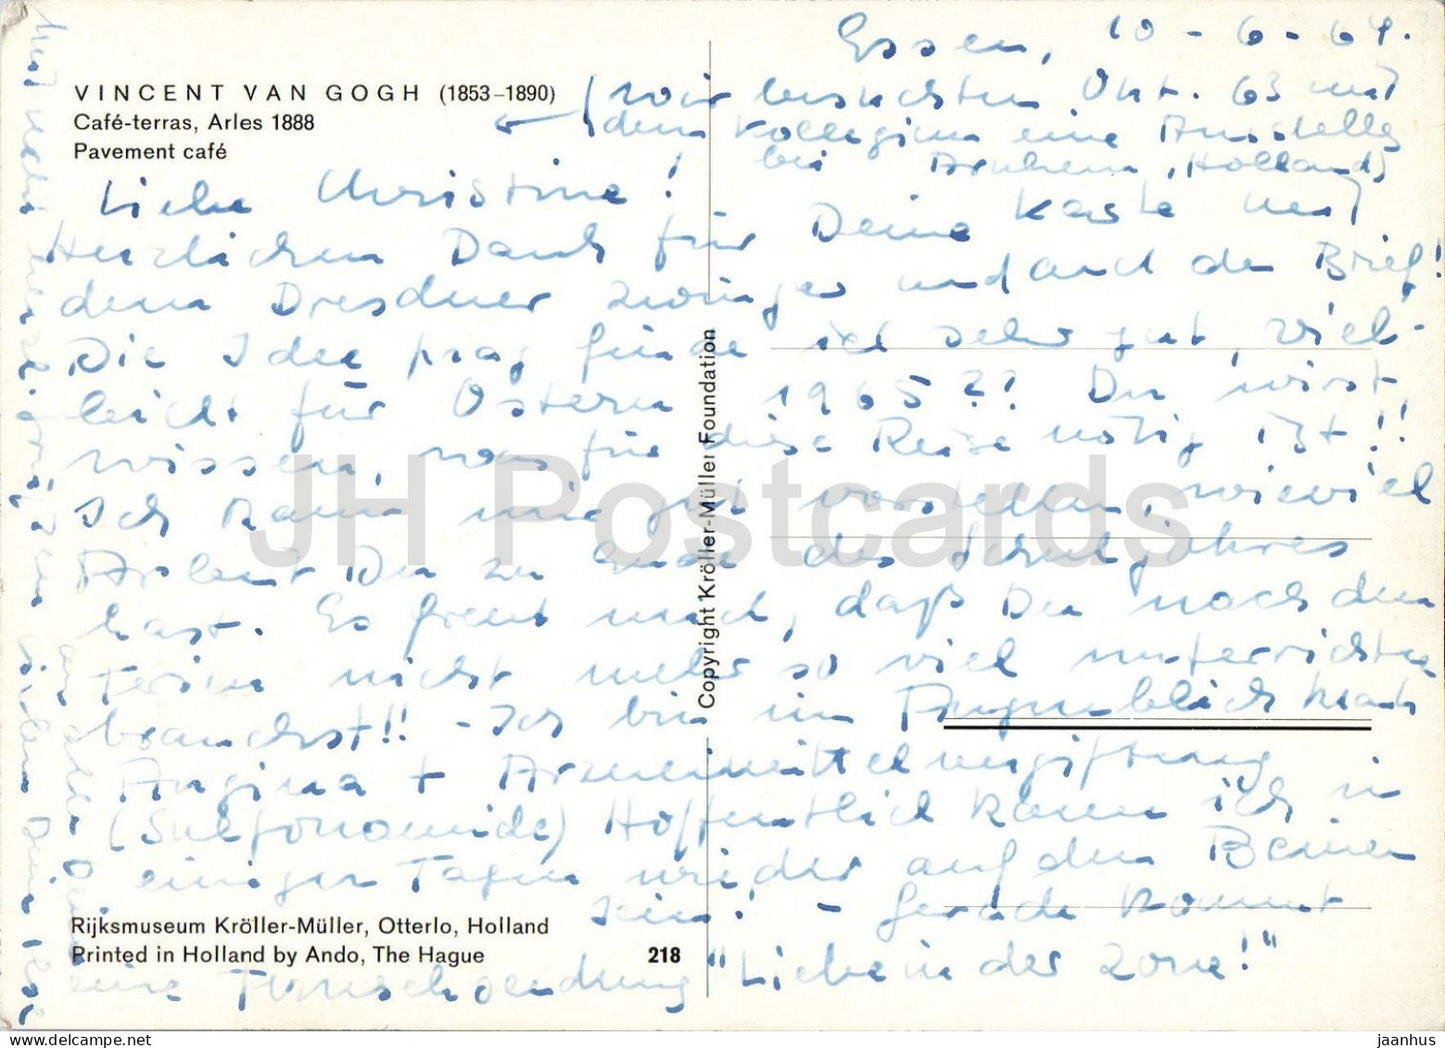 Essen, 10-6-64.
VINCENT VAN GOGH (1853–1890)
Café-terras, Arles 1888
Pavement café
(wir besuchten Okt. 63 mit
dem Kollegium eine Ausstellg
bei Arnhem, (Holland)
Liebe Christine!
Herzlichen Dank für Deine Karte mit
dem Dresdner Zwinger und auch den Brief!
Die Idee prag finde ich sehr gut, viel-
leicht für Ostern 1965?? Du wirst
wissen, was für diese Reise nötig ist!!
Ich kann mir gut vorstellen, wieviel
Arbeit Du zu Ende des Schuljahres
hast. Es freut mich, daß Du nach den
Ferien nicht mehr so viel unterrichten
brauchst!! - Ich bin im Augenblick krank
Angina + Arzneimittelvergiftung
(Sulfonamide) Hoffentlich kann ich in
einigen Tagen wieder auf den Beinen
sein! - Gerade kommt
eine Fernsehsendung "Liebe in der Zone!"
Copyright Kröller-Müller Foundation
Rijksmuseum Kröller-Müller, Otterlo, Holland
Printed in Holland by Ando, The Hague
218
JH Postcards
jaanhus.com